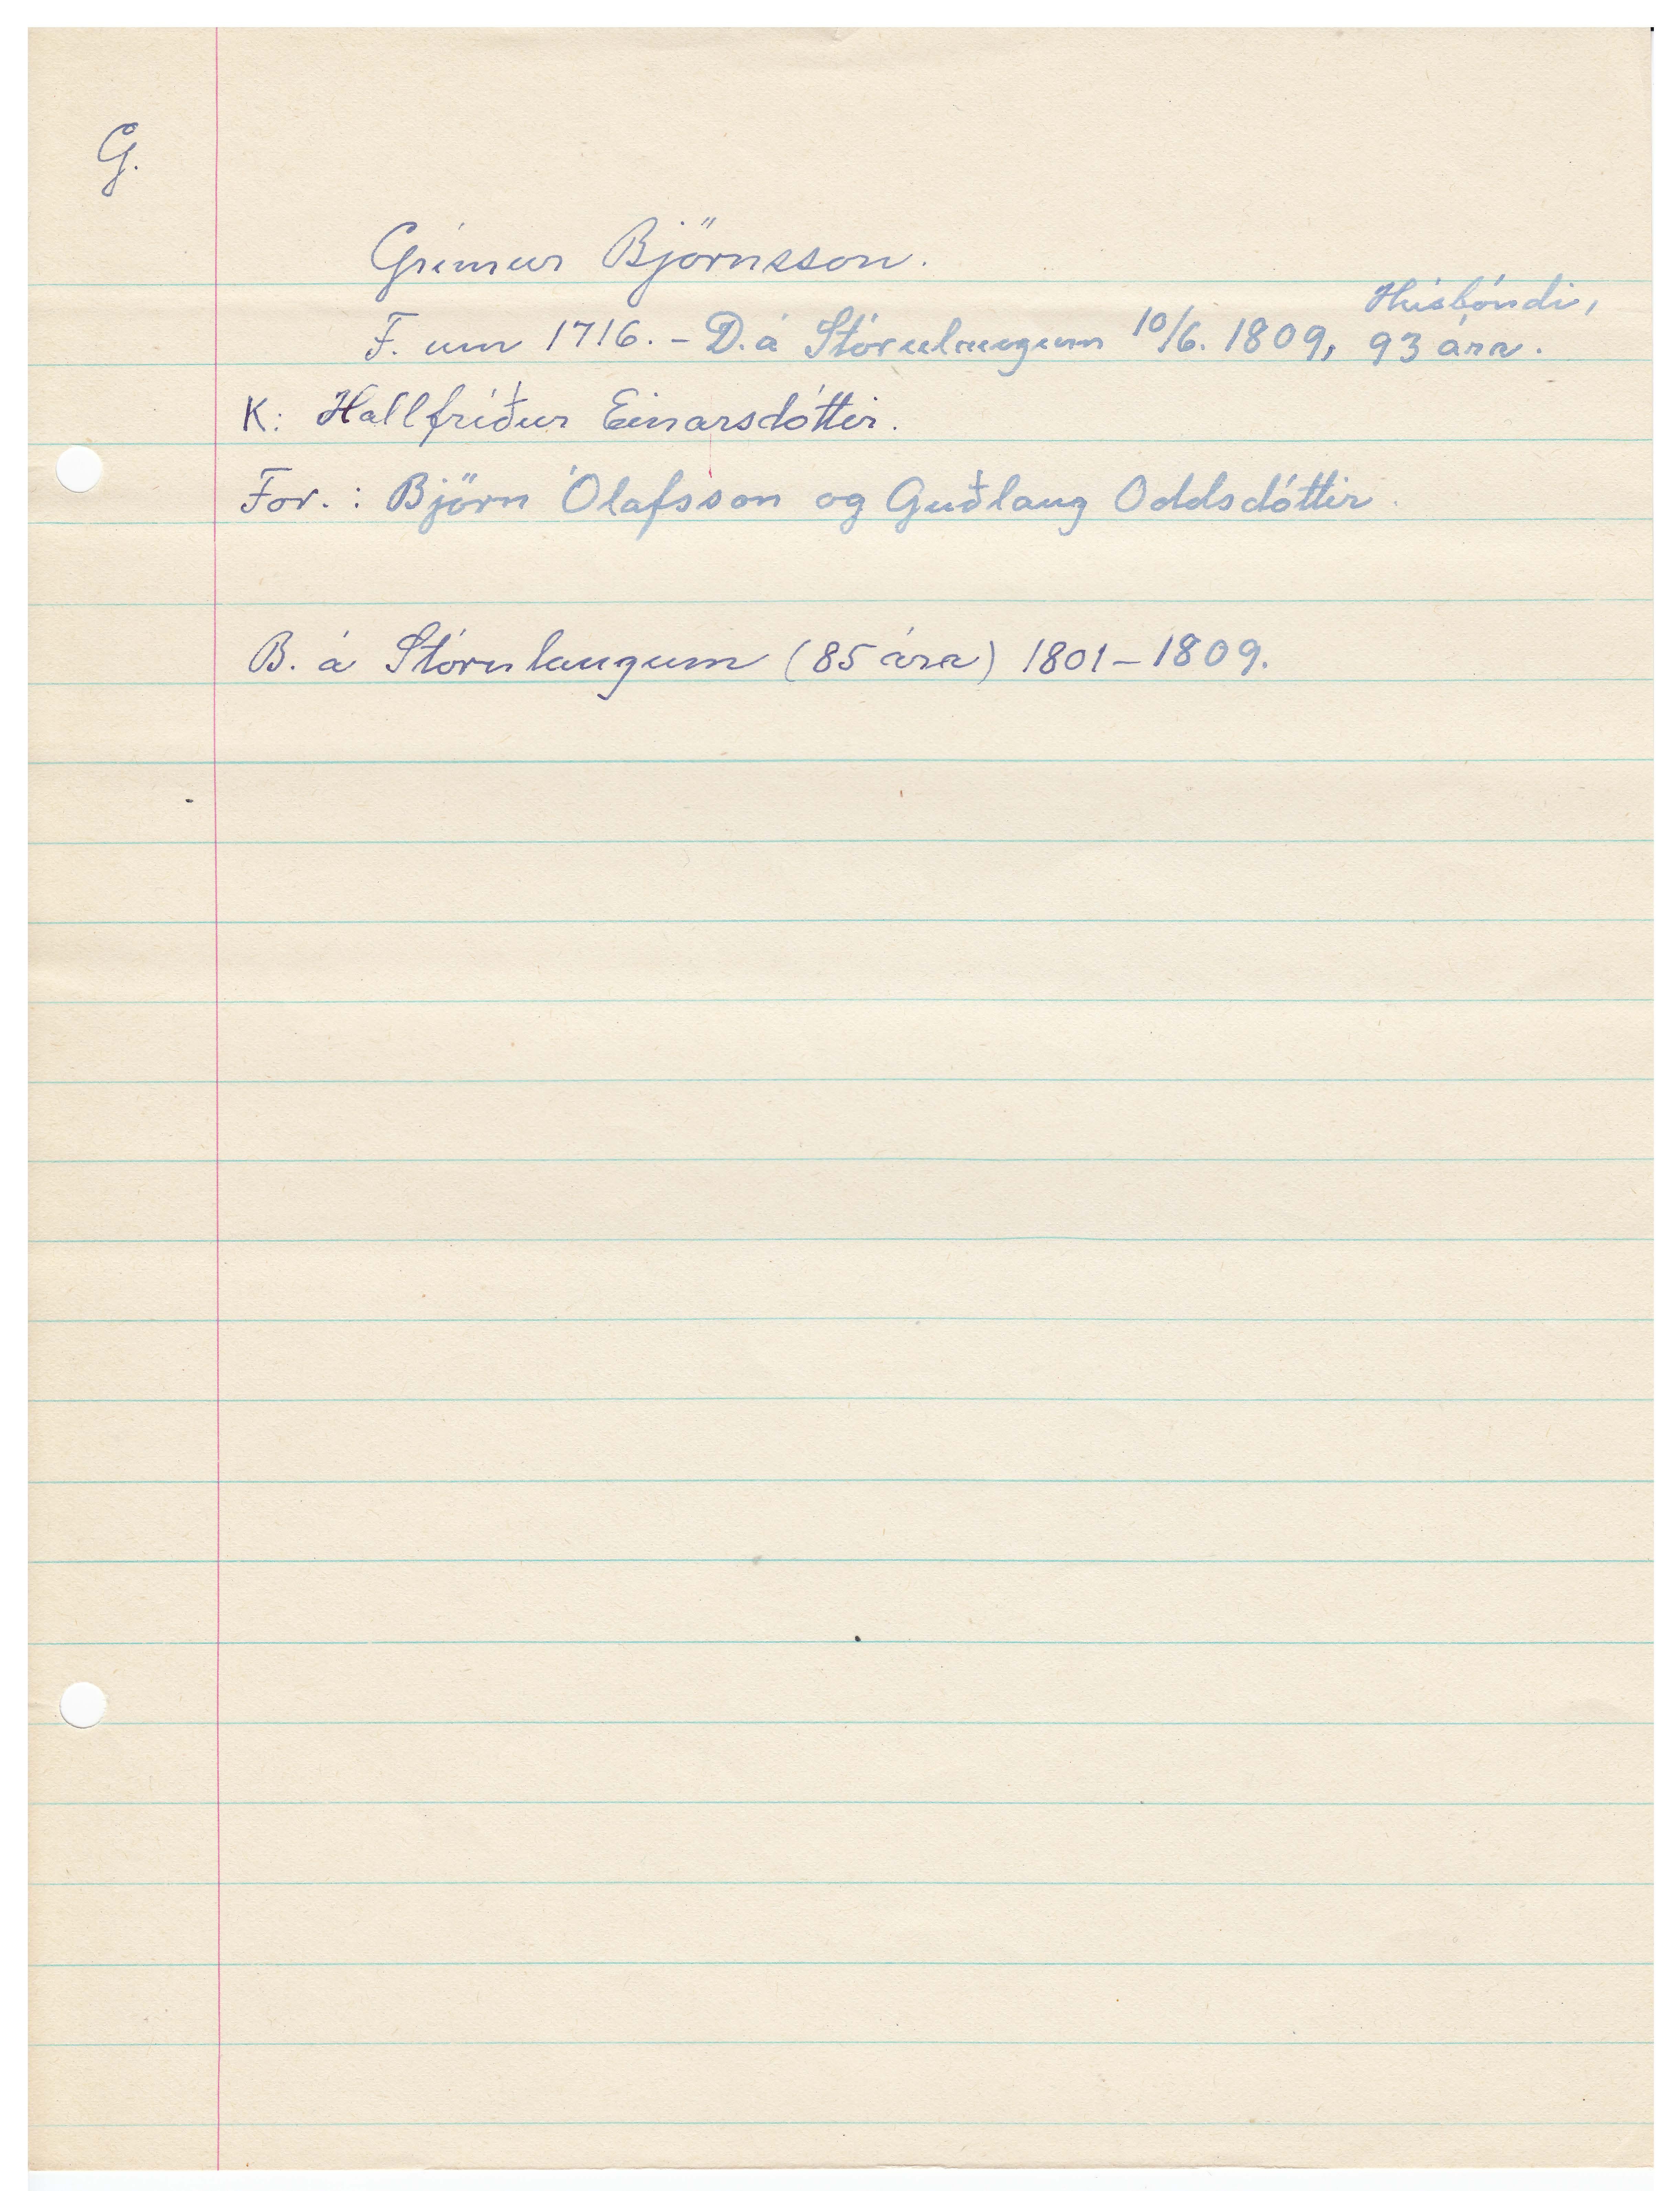 G.
Grímur Björnsson.
Húsbóndi,
F. um 1716. - D. á Stórulaugum 10/6. 1809, 93 ára.
K: Hallfríður Einarsdóttir.
For. : Björn Ólafsson og Guðlaug Oddsdóttir.
B. á Stórulaugum (85 ára) 1801-1809.